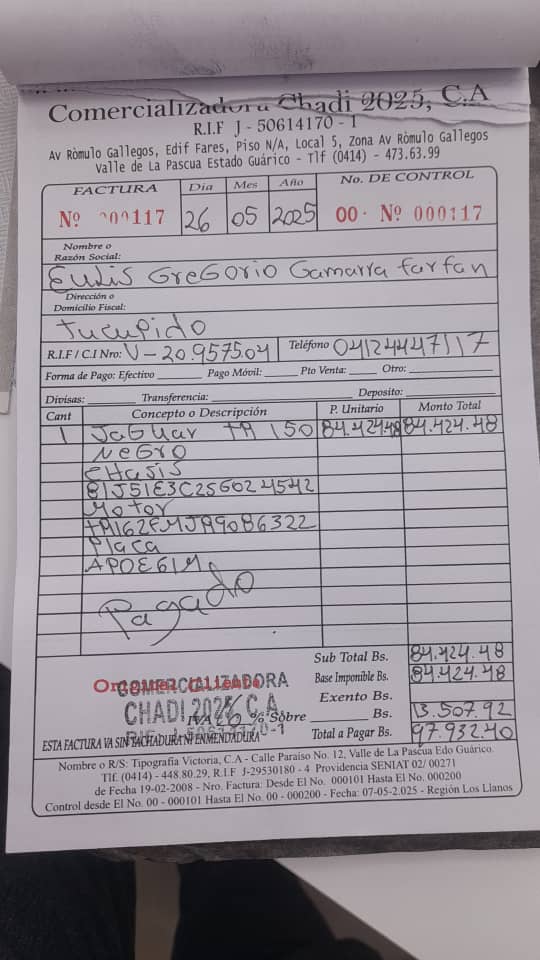 Comercializadora Chadi 2025, C.A
R.I.F J - 50614170 - 1
Av Ròmulo Gallegos, Edif Fares, Piso N/A, Local 5, Zona Av Ròmulo Gallegos
Valle de La Pascua Estado Guárico - Tlf (0414) - 473.63.99
FACTURA Dia Mes Año No. DE CONTROL
Nº 000117 26 05 2025 00 · Nº 000117
Nombre o
Razón Social:
Eulis GreGorio Gamarra farfan
Dirección o
Domicilio Fiscal:
tucupido
R.I.F / C.I Nro: V-20.957504 Teléfono 04124447117
Forma de Pago: Efectivo Pago Móvil: Pto Venta: Otro:
Divisas: Transferencia: Deposito:
Cant Concepto o Descripción P. Unitario Monto Total
1 JaGuar TA 150 84.424.48 84.424.48
NeGro
CHasis
81J51E3C25G024542
Motor
TA162FMJA9086322
Placa
AP0E61M
Pagado
Sub Total Bs. 84.424.48
Base Imponible Bs. 84.424.48
Exento Bs.
IVA 16 % Sobre Bs. 13.507.92
Total a Pagar Bs. 97.932.40
COMERCIALIZADORA
CHADI 2025 C.A
ESTA FACTURA VA SIN TACHADURA NI ENMENDADURA
Nombre o R/S: Tipografía Victoria, C.A - Calle Paraíso No. 12, Valle de La Pascua Edo Guárico.
Tlf. (0414) - 448.80.29, R.I.F J-29530180 - 4 Providencia SENIAT 02/ 00271
de Fecha 19-02-2008 - Nro. Factura: Desde El No. 000101 Hasta El No. 000200
Control desde El No. 00 - 000101 Hasta El No. 00 - 000200 - Fecha: 07-05-2.025 - Región Los Llanos